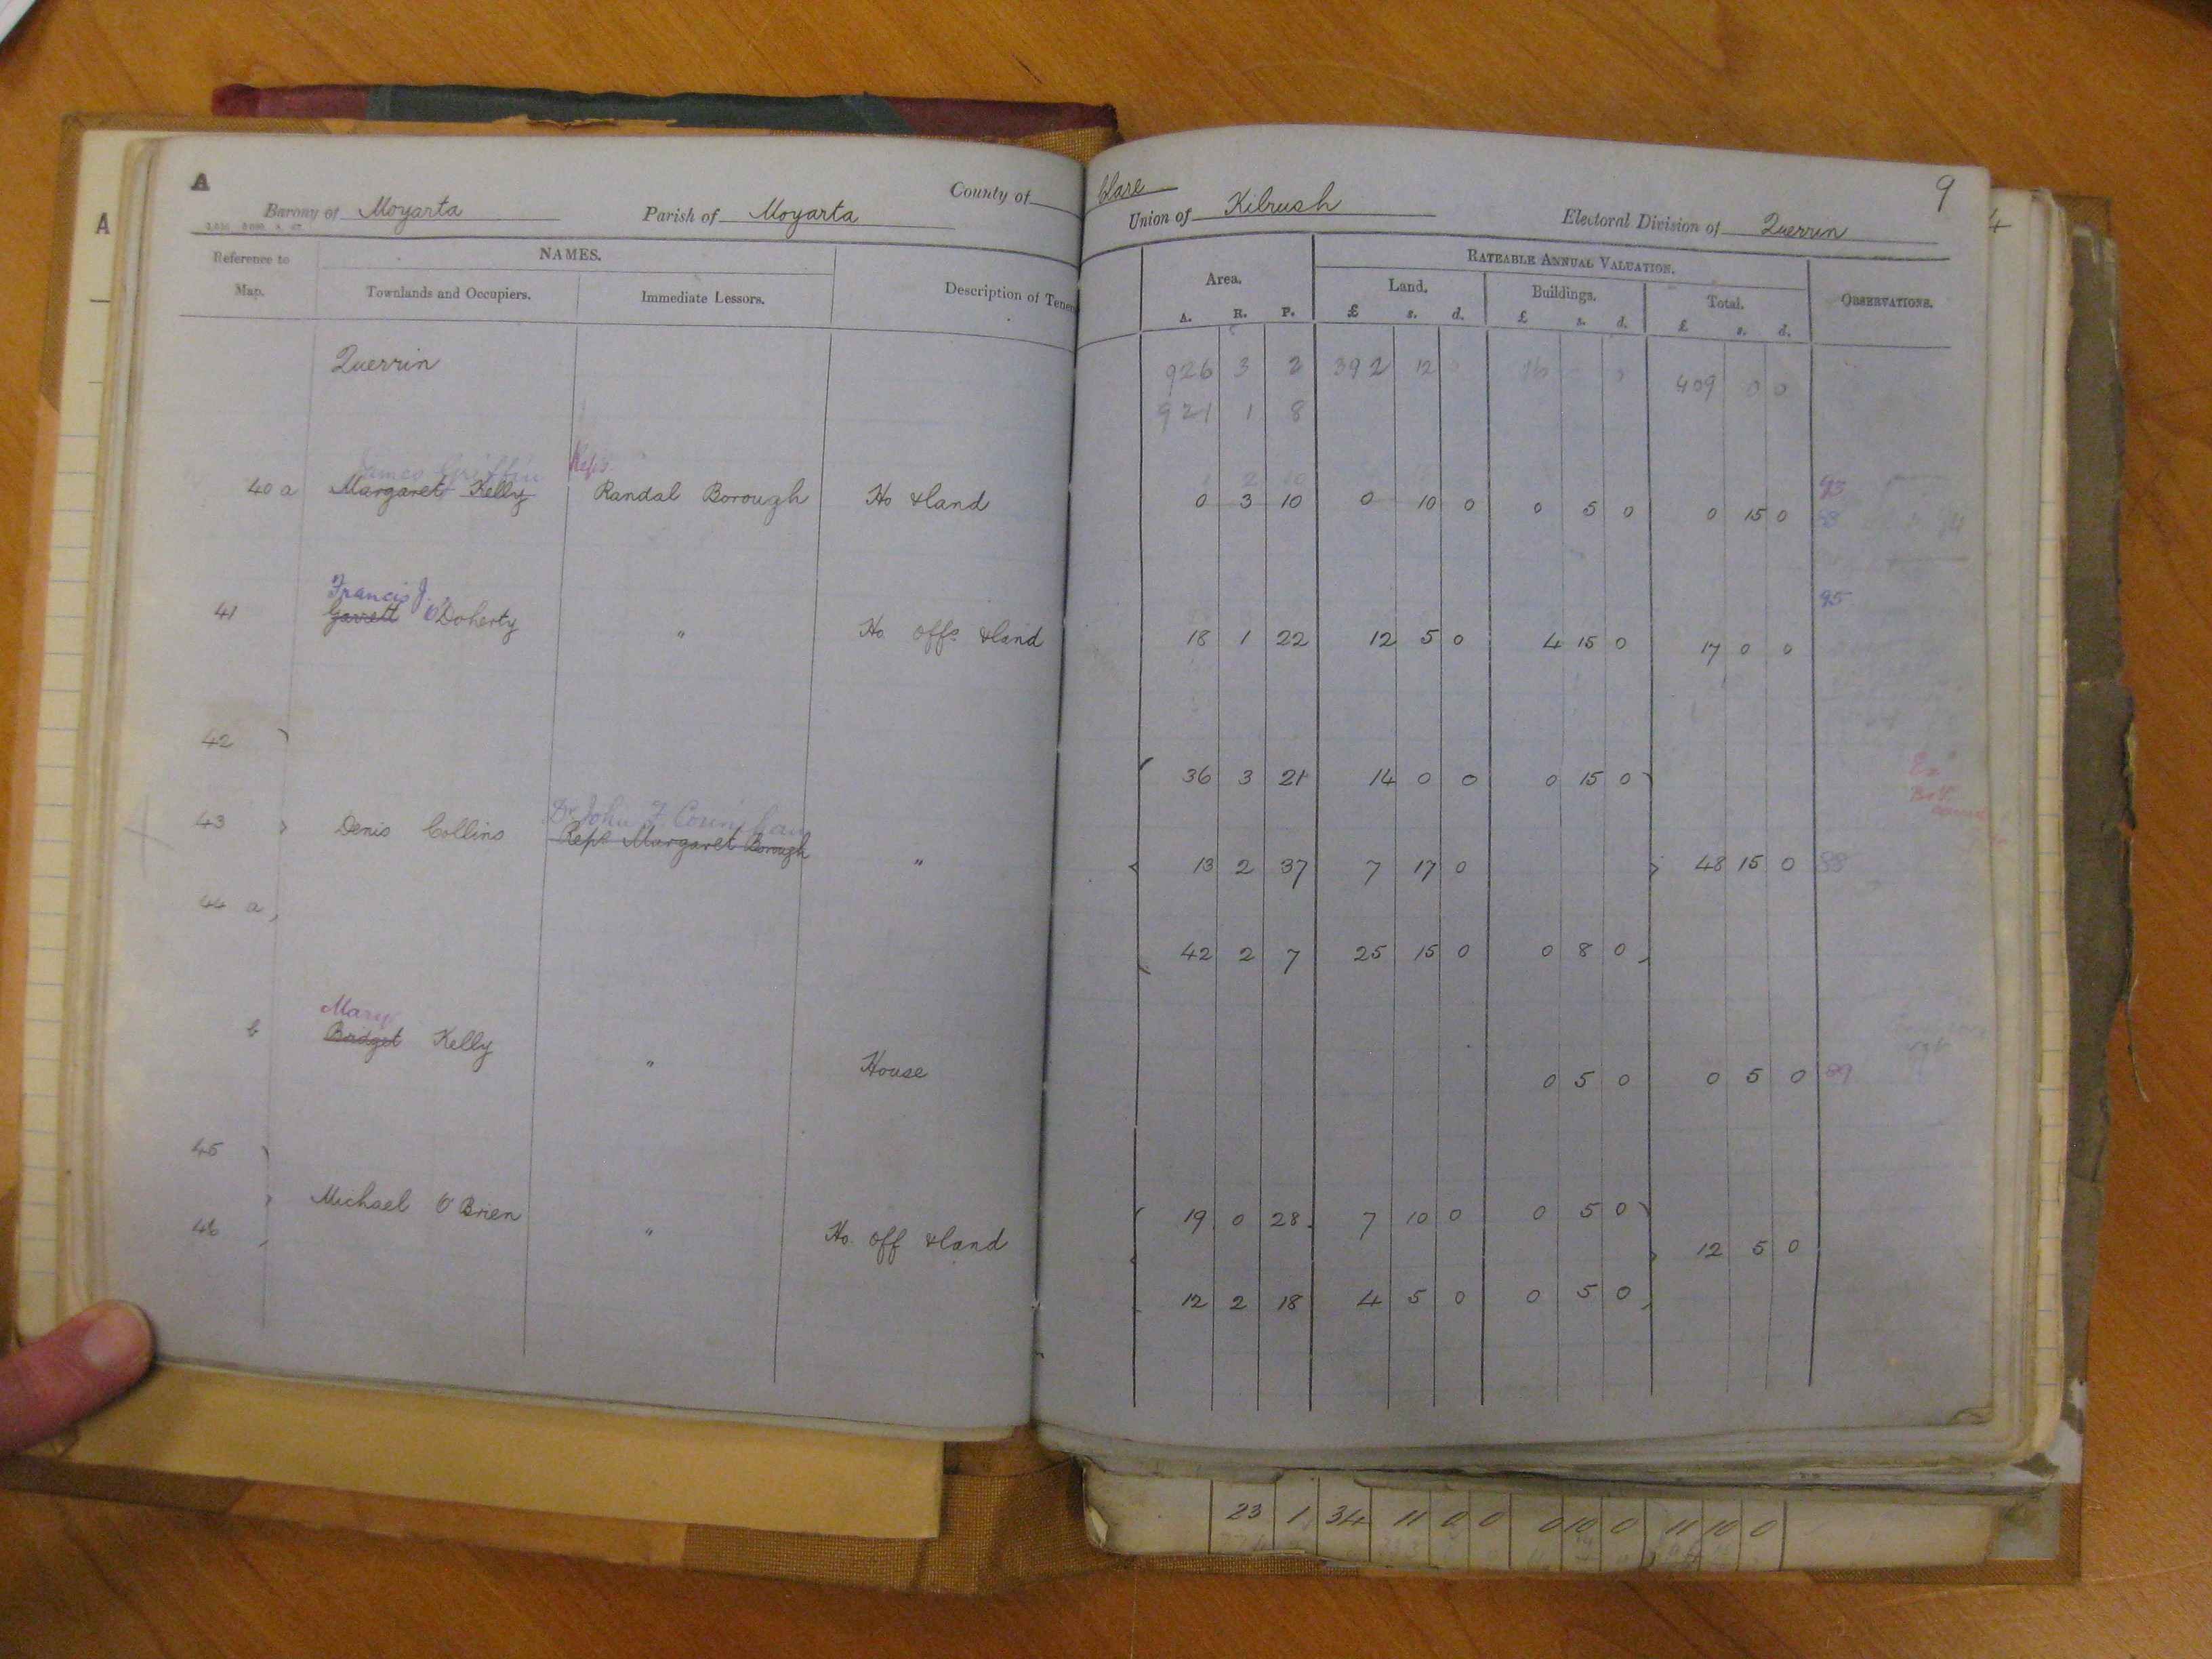 A
County of Clare
9
Barony of Moyarta Parish of Moyarta Union of Kilrush Electoral Division of Querrin
4
A
Reference to Map. NAMES. Description of Tene Area. RATEABLE ANNUAL VALUATION. OBSERVATIONS.
Townlands and Occupiers. Immediate Lessors. Land. Buildings. Total.
A. R. P. £ s. d. £ s. d. £ s. d.
Querrin 926 3 2 392 12 409 0 0
921 1 8
James Griffin Reps. 93
40 a Margaret Kelly Randal Borough Ho & land 0 3 10 0 10 0 0 5 0 0 15 0 88
Francis J. 95
41 Garrett O'Doherty " Ho offs & land 18 1 22 12 5 0 4 15 0 17 0 0
42 36 3 21 14 0 0 0 15 0
Dr John F. Counihan
43 Denis Collins Reps Margaret Borough " 13 2 37 7 17 0 48 15 0 88
44 a 42 2 7 25 15 0 0 8 0
Mary
b Bridget Kelly " House 0 5 0 0 5 0 89
45 19 0 28 7 10 0 0 5 0
Michael O'Brien " Ho. off & land 12 5 0
46 12 2 18 4 5 0 0 5 0
23 1 34 11 0 0 0 10 0 11 10 0